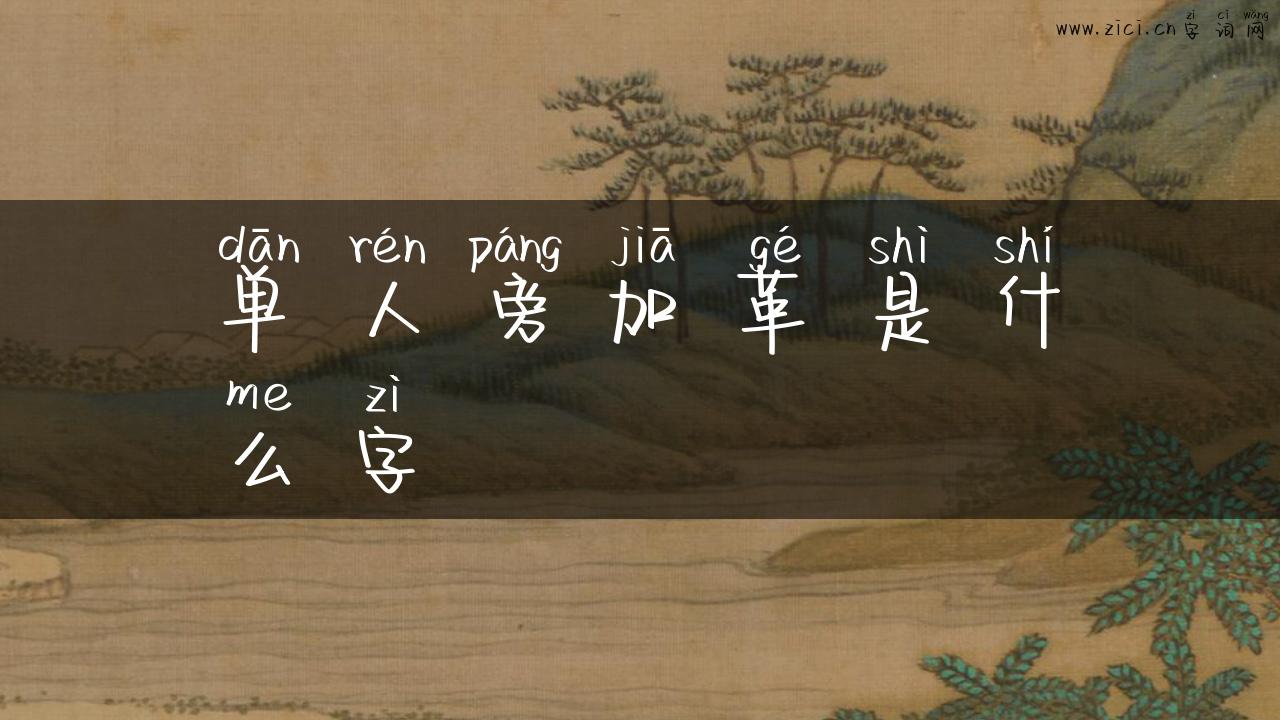 zì cí wǎng
www.zici.cn 字词网
dān rén páng jiā gé shì shí
单人旁加革是什
me zì
么字